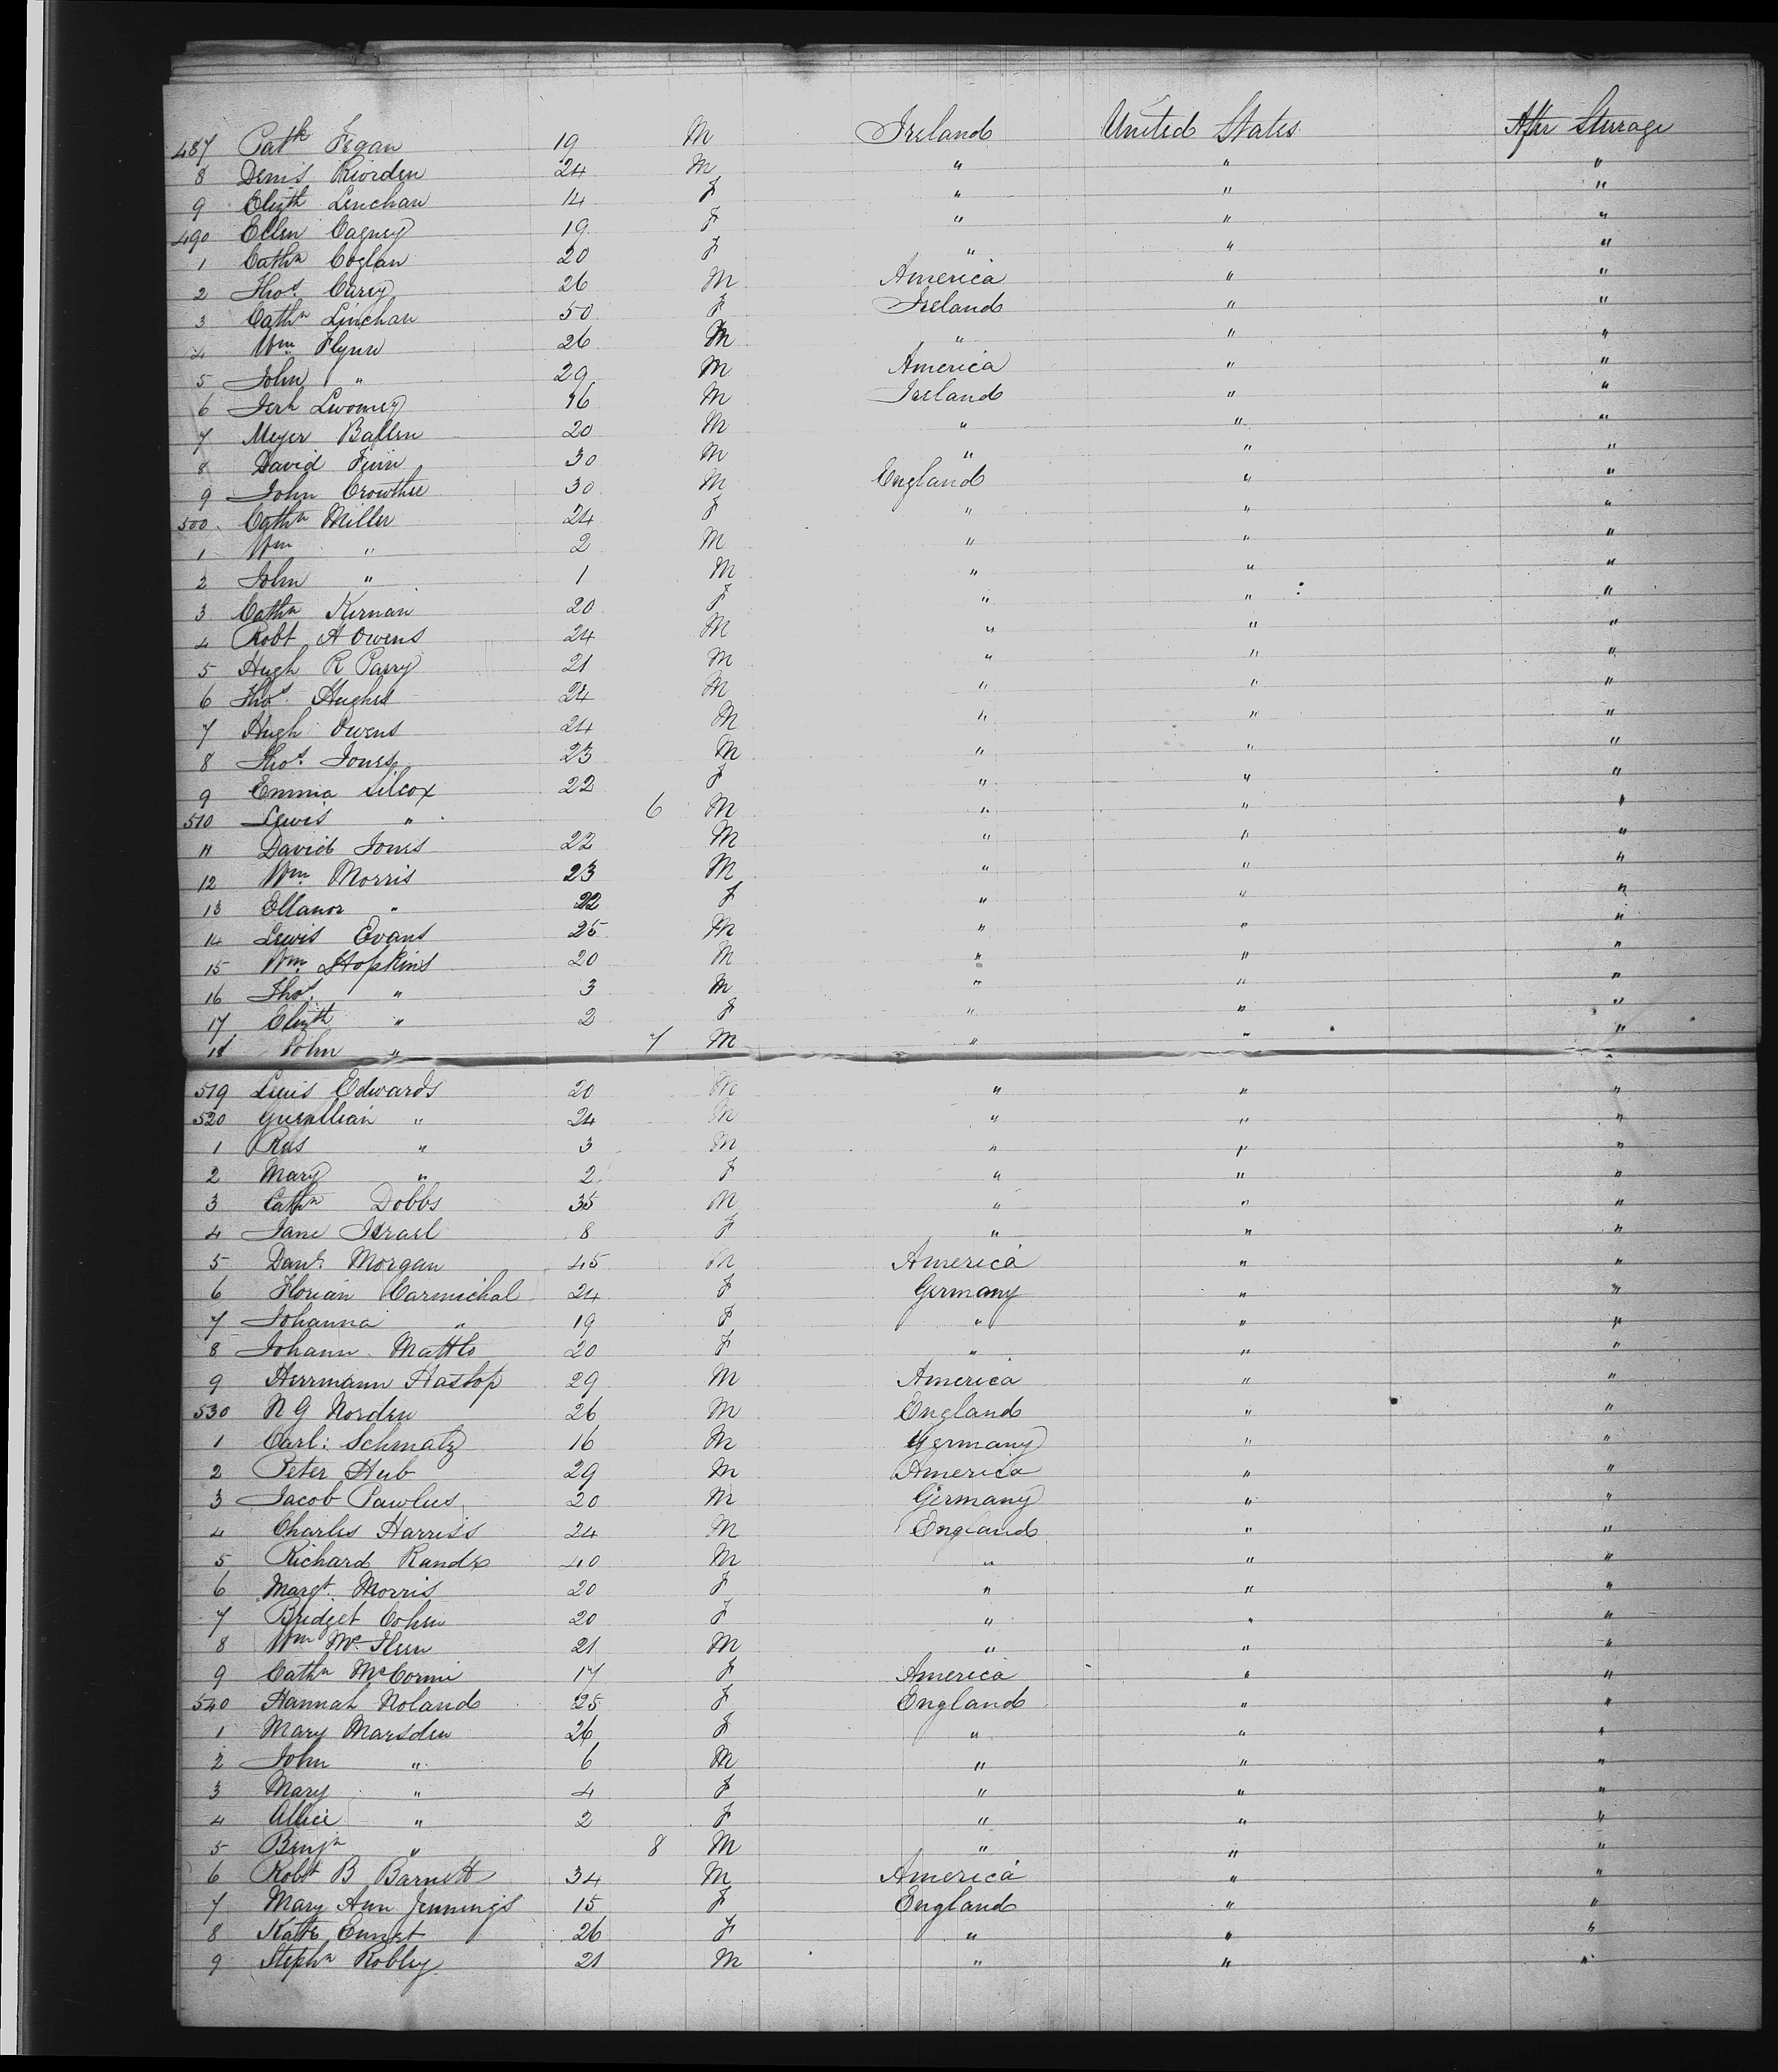 487 Patk Fegan 19 M Ireland United States After Sterrage
8 Denis Riorden 24 M " " "
9 Elizth Lenehan 14 F " " "
490 Ellen Cagney 19 F " " "
1 Cathn Coglan 20 F " " "
2 Thos Carey 26 M America " "
3 Cathn Linehan 50 F Ireland " "
4 Wm Flynn 26 M " " "
5 John " 29 M America " "
6 Jerh 16 M Ireland " "
7 Meyer Ballen 20 M " " "
8 David Finn 30 M " " "
9 John Crowthee 30 M England " "
500 Cathn Miller 24 F " " "
1 Wm " 2 M " " "
2 John " 1 M " " "
3 Cathn Kernan 20 F " " "
4 Robt A Owens 24 M " " "
5 Hugh R Parry 21 M " " "
6 Thos Hughes 24 M " " "
7 Hugh Owens 24 M " " "
8 Thos Jones 23 M " " "
9 Emma Silcox 22 F " " "
510 Lewis " 6 M " " "
11 David Jones 22 M " " "
12 Wm Morris 23 M " " "
13 Ellanor " 22 F " " "
14 Lewis Evans 25 M " " "
15 Wm Hopkins 20 M " " "
16 Thos " 3 M " " "
17 Elizth " 2 F " " "
18 John " 7 M " " "
519 Lewis Edwards 20 M " " "
520 " 24 M " " "
1 Rees " 3 M " " "
2 Mary " 2 F " " "
3 Cathn Dobbs 35 M " " "
4 Jane Israel 8 F " " "
5 Danl Morgan 45 M America " "
6 Florian Carmichal 24 F Germany " "
7 Johanna " 19 F " " "
8 Johann 20 F " " "
9 Herrmann Hastop 29 M America " "
530 N G Norden 26 M England " "
1 Carl: Schmatz 16 M Germany " "
2 Peter Herb 29 M America " "
3 Jacob Pawlus 20 M Germany " "
4 Charles Harriss 24 M England " "
5 Richard 40 M " " "
6 Margt Morris 20 F " " "
7 Bridget Cohen 20 F " " "
8 Wm 21 M " " "
9 Cathn McCormi 17 F America " "
540 Hannah Noland 25 F England " "
1 Mary Marsden 26 F " " "
2 John " 6 M " " "
3 Mary " 4 F " " "
4 Allice " 2 F " " "
5 Benjn " 8 M " " "
6 Robt B Barnett 34 M America " "
7 Mary Ann Jennings 15 F England " "
8 Kate 26 F " " "
9 Stephn Robley 21 M " " "